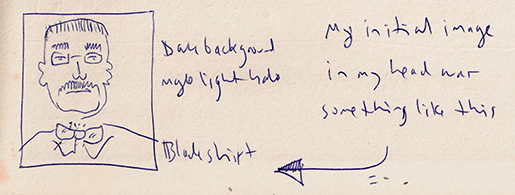 Dark background
mayb light halo
Black shirt
My initial image
in my head was
something like this